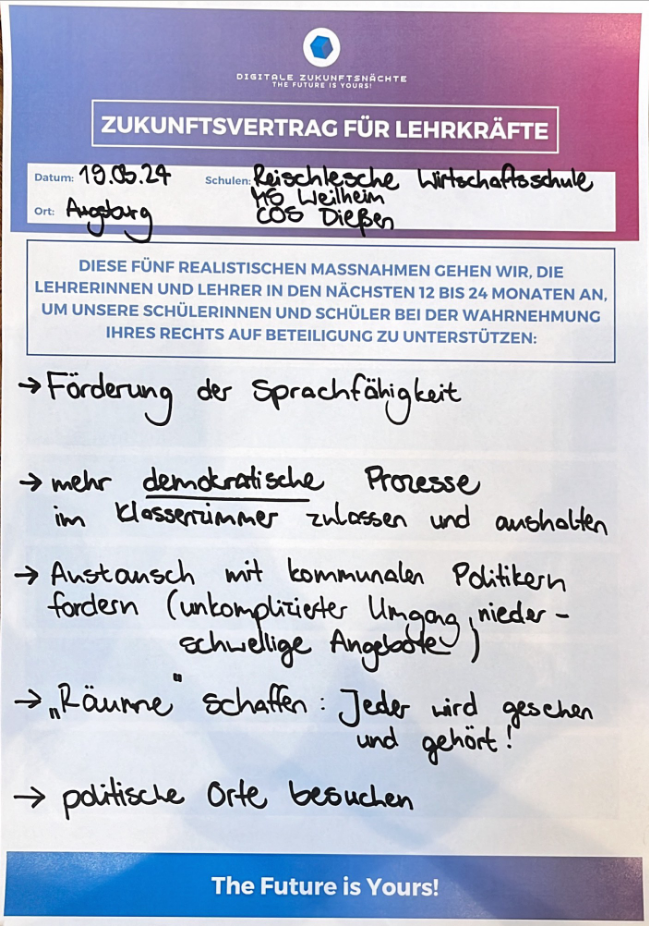 DIGITALE ZUKUNFTSNÄCHTE
THE FUTURE IS YOURS!
ZUKUNFTSVERTRAG FÜR LEHRKRÄFTE
Datum: 19.06.24 Schulen: Reischlesche Wirtschaftsschule
MS Weilheim
Ort: Augsburg COS Dießen
DIESE FÜNF REALISTISCHEN MASSNAHMEN GEHEN WIR, DIE
LEHRERINNEN UND LEHRER IN DEN NÄCHSTEN 12 BIS 24 MONATEN AN,
UM UNSERE SCHÜLERINNEN UND SCHÜLER BEI DER WAHRNEHMUNG
IHRES RECHTS AUF BETEILIGUNG ZU UNTERSTÜTZEN:
→ Förderung der Sprachfähigkeit
→ mehr demokratische Prozesse
im Klassenzimmer zulassen und aushalten
→ Austausch mit kommunalen Politikern
fordern (unkomplizierter Umgang, nieder-
schwellige Angebote)
→ „Räume" schaffen: Jeder wird gesehen
und gehört!
→ politische Orte besuchen
The Future is Yours!